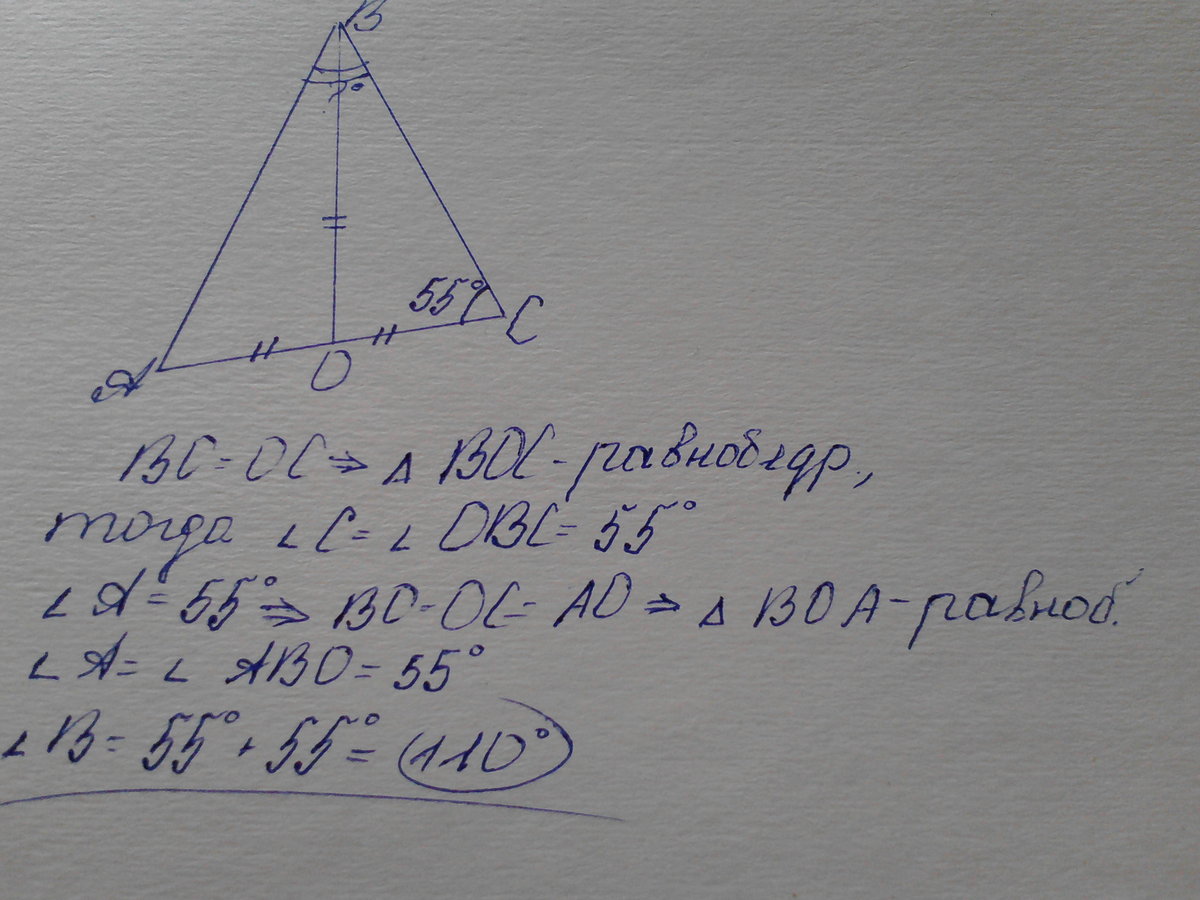 B
?°
55°
C
A
O
BC=OC⇒ △ BOC-равнобедр.,
тогда ∠ C= ∠ OBC= 55°
∠ A= 55°⇒ BO=OC= AO ⇒ △ BOA-равноб.
∠ A= ∠ ABO= 55°
∠ B= 55°+ 55°= 110°